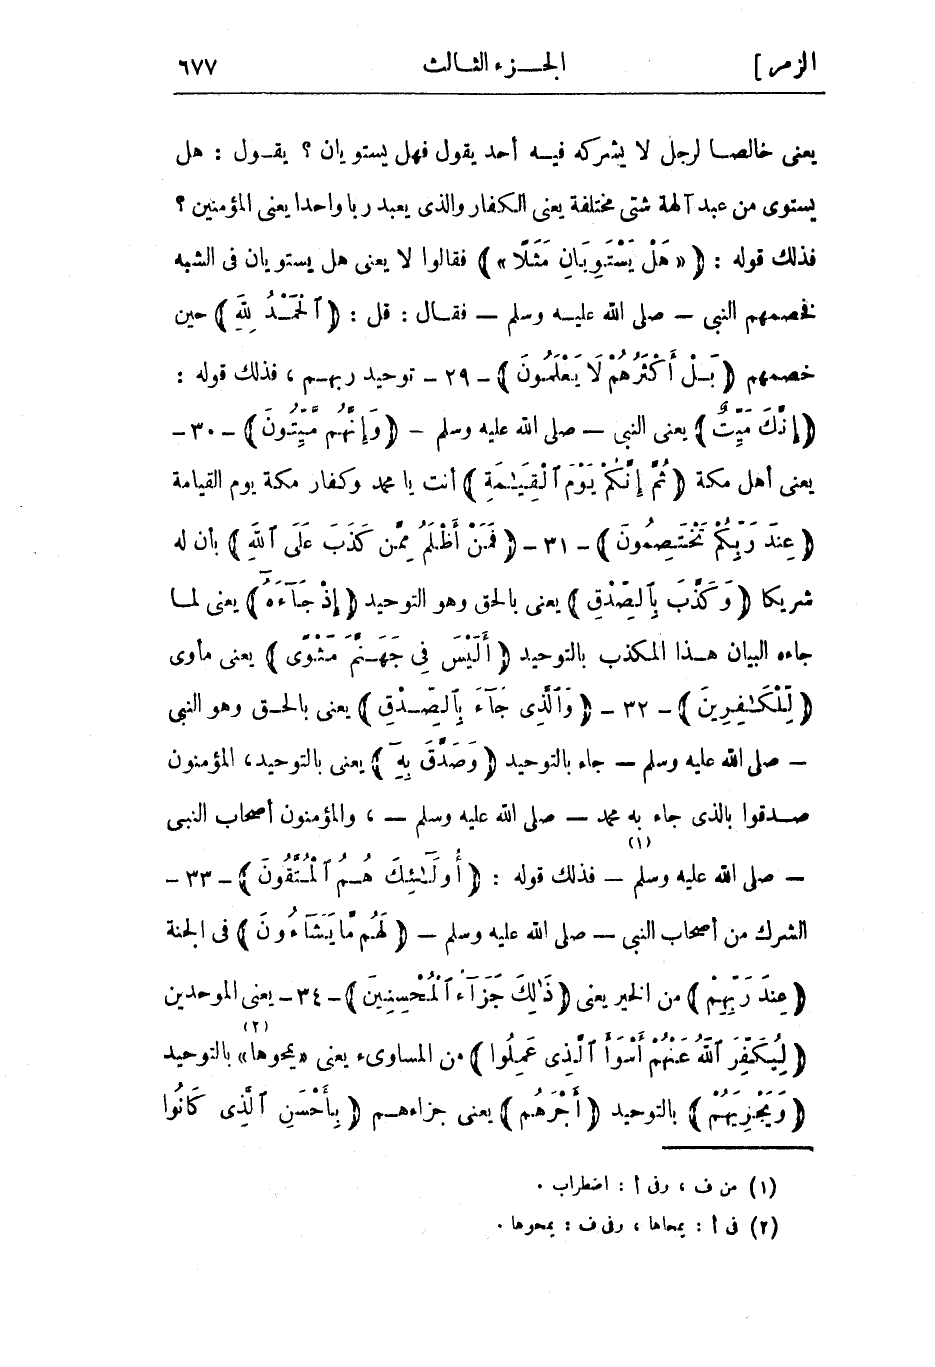 الزمر] الجزء الثالث ٦٧٧
يعنى خالصا لرجل لا يشركه فيه أحد يقول فهل يستويان ؟ يقول : هل
يستوى من عبد آلهة شتى مختلفة يعنى الكفار والذى يعبد ربا واحدا يعنى المؤمنين ؟
فذلك قوله : ﴿ « هَلْ يَسْتَوِيَانِ مَثَلًا » ﴾ فقالوا لا يعنى هل يستويان فى الشبه
فخصمهم النبى — صلى الله عليه وسلم — فقال : قل : ﴿ ٱلْحَمْدُ لِلَّهِ ﴾ حين
خصمهم ﴿ بَلْ أَكْثَرُهُمْ لَا يَعْلَمُونَ ﴾ - ٢٩ - توحيد ربهم ، فذلك قوله :
﴿ إِنَّكَ مَيِّتٌ ﴾ يعنى النبى — صلى الله عليه وسلم — ﴿ وَإِنَّهُم مَّيِّتُونَ ﴾ - ٣٠ -
يعنى أهل مكة ﴿ ثُمَّ إِنَّكُمْ يَوْمَ ٱلْقِيَٰمَةِ ﴾ أنت يا محمد وكفار مكة يوم القيامة
﴿ عِندَ رَبِّكُمْ تَخْتَصِمُونَ ﴾ - ٣١ - ﴿ فَمَنْ أَظْلَمُ مِمَّن كَذَبَ عَلَى ٱللَّهِ ﴾ بأن له
شريكا ﴿ وَكَذَّبَ بِٱلصِّدْقِ ﴾ يعنى بالحق وهو التوحيد ﴿ إِذْ جَآءَهُۥٓ ﴾ يعنى لما
جاءه البيان هذا المكذب بالتوحيد ﴿ أَلَيْسَ فِى جَهَنَّمَ مَثْوًى ﴾ يعنى مأوى
﴿ لِّلْكَٰفِرِينَ ﴾ - ٣٢ - ﴿ وَٱلَّذِى جَآءَ بِٱلصِّدْقِ ﴾ يعنى بالحق وهو النبى
— صلى الله عليه وسلم — جاء بالتوحيد ﴿ وَصَدَّقَ بِهِۦٓ ﴾ يعنى بالتوحيد، المؤمنون
صدقوا بالذى جاء به محمد — صلى الله عليه وسلم — ، والمؤمنون أصحاب النبى
— صلى الله عليه وسلم (١) — فذلك قوله : ﴿ أُولَٰٓئِكَ هُمُ ٱلْمُتَّقُونَ ﴾ - ٣٣ -
الشرك من أصحاب النبى — صلى الله عليه وسلم — ﴿ لَهُم مَّا يَشَآءُونَ ﴾ فى الجنة
﴿ عِندَ رَبِّهِمْ ﴾ من الخير يعنى ﴿ ذَٰلِكَ جَزَآءُ ٱلْمُحْسِنِينَ ﴾ - ٣٤ - يعنى الموحدين
﴿ لِيُكَفِّرَ ٱللَّهُ عَنْهُمْ أَسْوَأَ ٱلَّذِى عَمِلُوا ﴾ من المساوىء يعنى « يمحوها » (٢) بالتوحيد
﴿ وَيَجْزِيَهُمْ ﴾ بالتوحيد ﴿ أَجْرَهُم ﴾ يعنى جزاءهم ﴿ بِأَحْسَنِ ٱلَّذِى كَانُوا
(١) من ف ، وفى أ : اضطراب .
(٢) فى أ : يمحاها ، وفى ف : يمحوها .